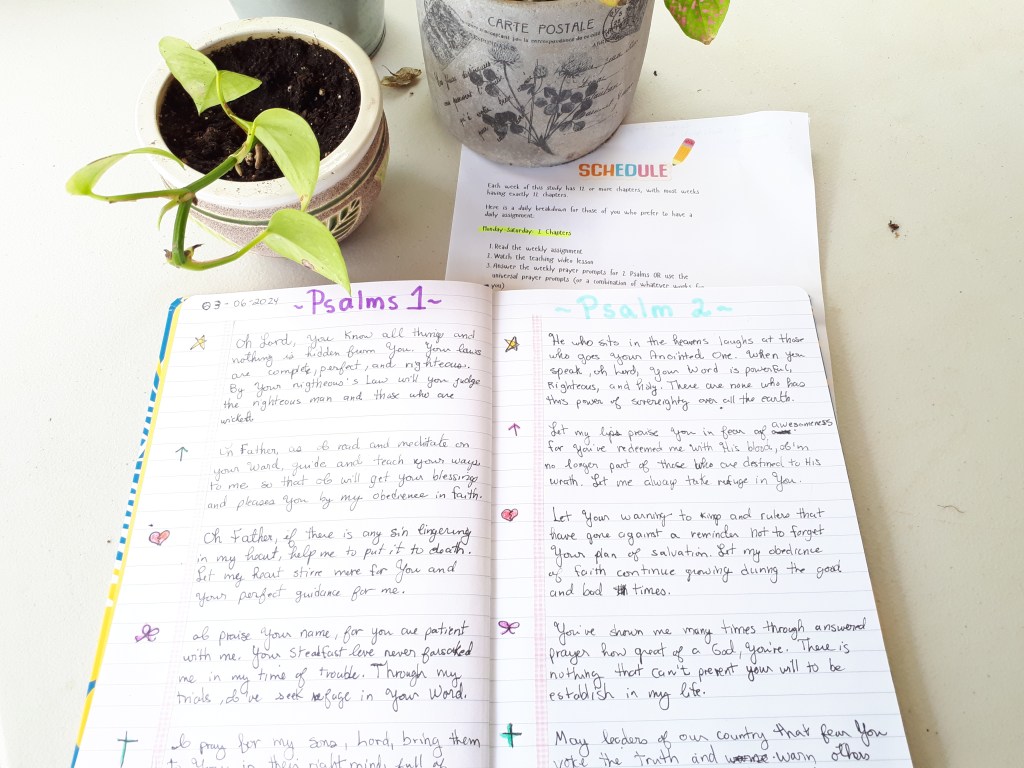 CARTE POSTALE
SCHEDULE
Each week of this study has 12 or more chapters, with most weeks
having exactly 12 chapters.
Here is a daily breakdown for those of you who prefer to have a
daily assignment.
Monday-Saturday: 2 Chapters
1. Read the weekly assignment
2. Watch the teaching video lesson
3. Answer the weekly prayer prompts for 2 Psalms OR use the
universal prayer prompts (or a combination of whatever works for
you)
03-06-2024
~Psalms 1~
Oh Lord, you know all things and
nothing is hidden from You. Your laws
are complete, perfect, and righteous.
By Your rightheous's Law will you judge
the righteous man and those who are
wicked.
Father, as I read and meditate on
your Word, guide and teach your ways
to me so that I will get your blessings
and pleases You by my obedience in faith.
Oh Father, if there is any sin lingering
in my heart, help me to put it to death.
Let my heart stirre more for You and
Your perfect guidance for me.
I praise Your name, for you are patient
with me. Your steadfast love never forsaked
me in my time of trouble. Through my
trials, I've seek refuge in Your Word.
I pray for my sons, Lord, bring them
to in their right mind, full of
~Psalm 2~
He who sits in the heavens laughs at those
who goes Your Anointed One. When you
speak, oh Lord, Your Word is powerful,
Righteous, and Holy. There are none who has
this power of sovereighty over all the earth.
Let my lips praise You in fear of awesomeness
for You've redeemed me with His blood, I'm
no longer part of those who are destined to His
wrath. Let me always take refuge in You.
Let Your warning to king and rulers that
have gone against a reminder not to forget
Your plan of salvation. Let my obedience
of faith continue growing during the good
and bad times.
You've shown me many times through answered
prayer how great of a God, you're. There is
nothing that can't prevent your will to be
establish in my life.
May leaders of our country that fear You
voke the truth and warn others